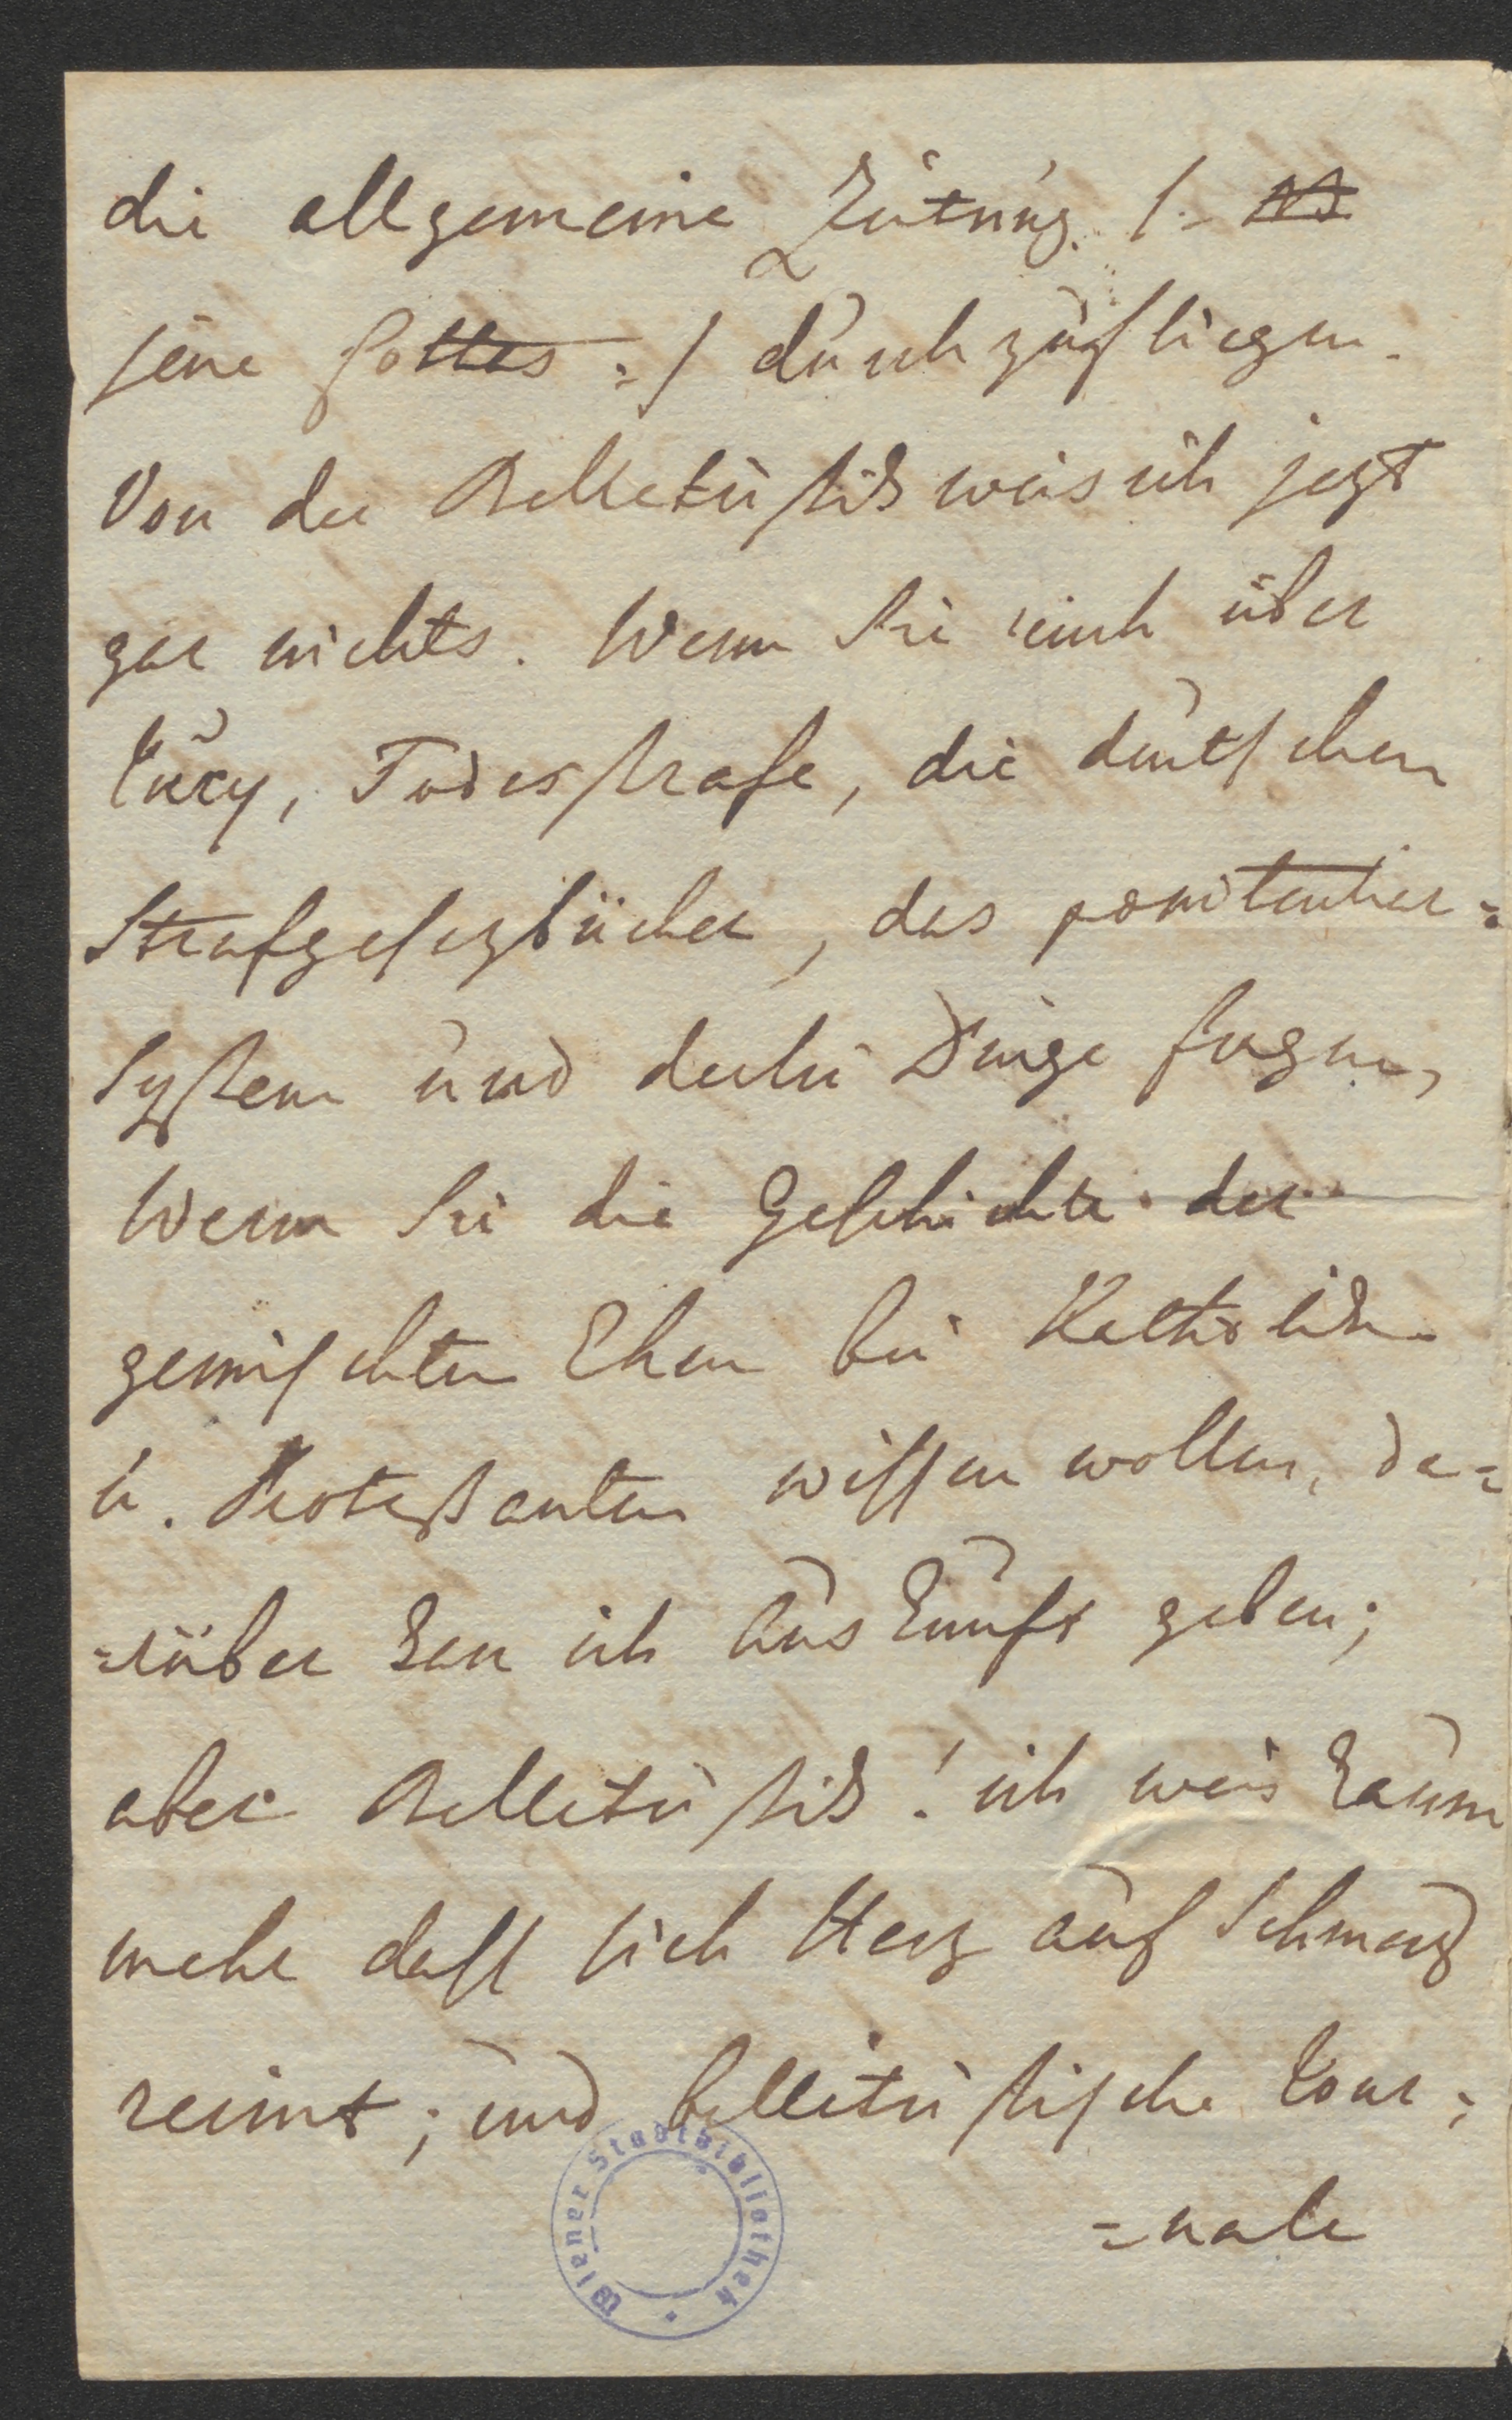 die allgemeine Zeitung /:
jene Gottes :/ durchzufliegen.
Von der Belletristik weis ich jezt
gar nichts. Wenn Sie mich über
Jury, Todesstrafe, die deutschen
Strafgesezbücher, das pönitentiar=
System und derlei Dinge fragen,
Wenn Sie die Geschichte der
gemischten Ehen bei Katholiken
u. Protestanten wissen wollen, da=
=rüber kan ich Auskunft geben;
aber Belletristik! ich weis kaum
mehr dass sich Herz auf Schmerz
reimt; und belletristische Jour=
=nale
Wiener Stadtbibliothek